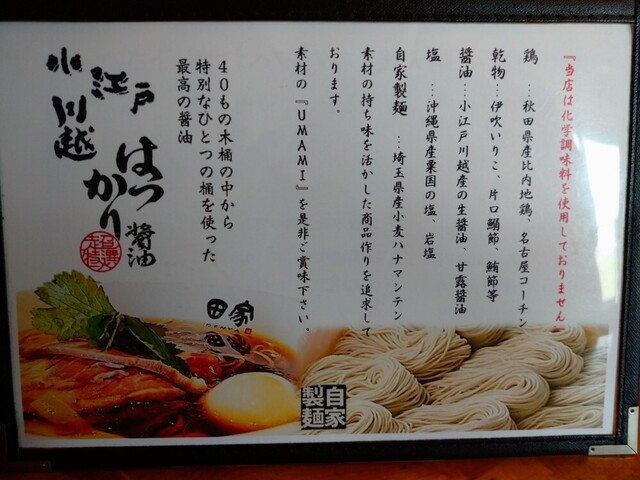 『当店は化学調味料を使用しておりません』
鶏 …秋田県産比内地鶏、名古屋コーチン
乾物…伊吹いりこ、片口鰯節、鮪節等
醤油…小江戸川越産の生醤油、甘露醤油
塩 …沖縄県産粟国の塩、岩塩
自家製麺 …埼玉県産小麦ハナマンテン
素材の持ち味を活かした商品作りを追求して
おります。
素材の『UMAMI』を是非ご賞味下さい。
40もの木桶の中から
特別なひとつの桶を使った
最高の醤油
小江戸
川越
はつかり
醤油
自家
製麺